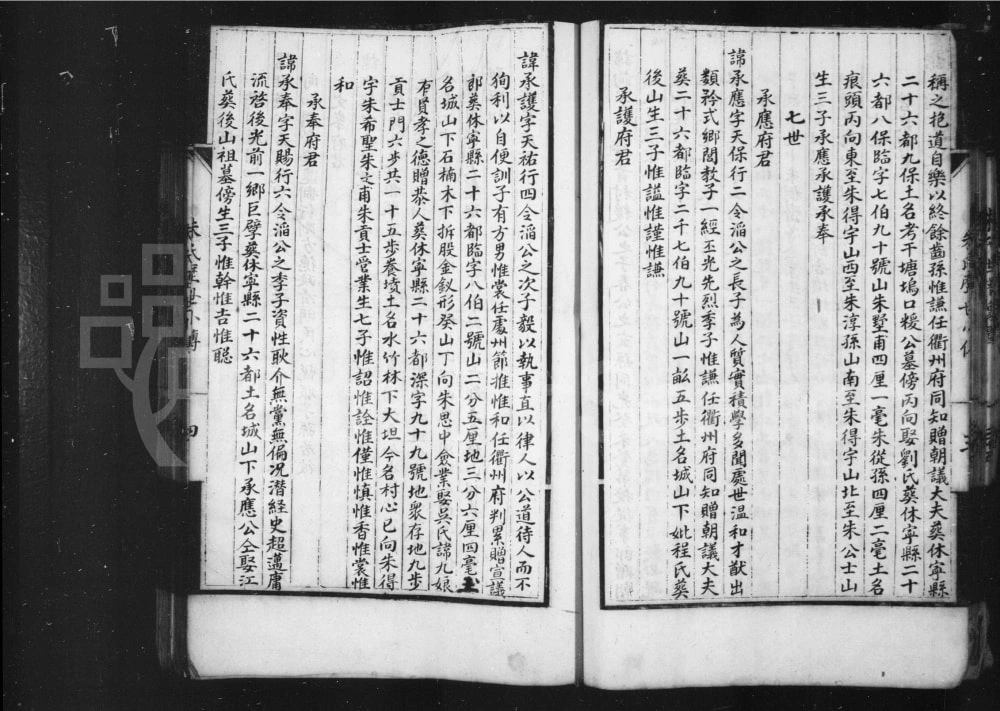 稱之抱道自樂以終餘齒孫惟謙任衢州府同知贈朝議大夫葵休寧縣
二十六都九保土名考干塘塢口糉公墓傍丙向娶劉氏葵休寧縣二十
六都八保臨字七伯九十號山朱墅甫四厘一毫朱從孫四厘二毫土名
痕頭丙向東至朱得宇山西至朱淳孫山南至朱得宇山北至朱公士山
生三子承應承護承奉
七世
承應府君
諱承應字天保行二令滔公之長子為人質實積學多聞處世温和才猷出
類矜式鄉閭教子一經丕光先烈季子惟謙任衢州府同知贈朝議大夫
葵二十六都臨字二千七伯九十號山一畝五步土名城山下妣程氏葵
後山生三子惟謚惟謹惟謙
承護府君
諱承護字天祐行四令滔公之次子毅以執事直以律人以公道待人而不
狥利以自便訓子有方男惟裳任處州節推惟和任衢州府判累贈宣議
郎葵休寧縣二十六都臨字八伯二號山二分五厘地三分六厘四毫土
名城山下石楠木下拆股金釵形癸山丁向朱思中僉業娶吳氏諱九娘
有賢孝之德贈恭人葵休寧縣二十六都深字九十九號地衆存地九步
貢士門六步共一十五步養墳土名水竹林下大坦今名村心巳向朱得
字朱希聖朱文甫朱貢士管業生七子惟詔惟詮惟僅惟慎惟香惟裳惟
和
承奉府君
諱承奉字天賜行六令滔公之季子資性耿介無黨無偏况潛經史超邁庸
流啓後光前一鄉巨擘葵休寧縣二十六都土名城山下承應公仝娶江
氏葵後山祖墓傍生三子惟幹惟吉惟聡
四